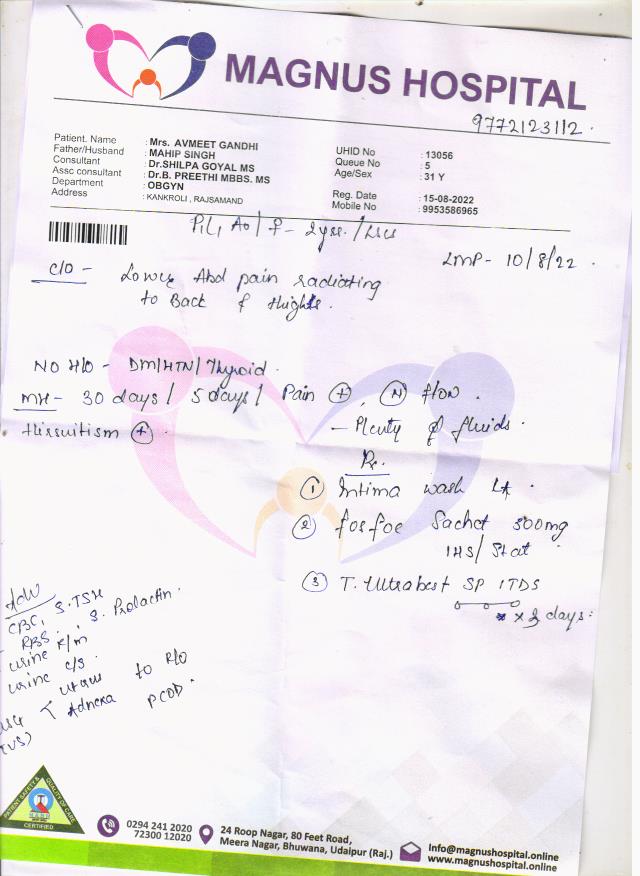 MAGNUS HOSPITAL
9772123112.
Patient. Name : Mrs. AVMEET GANDHI
Father/Husband : MAHIP SINGH
Consultant : Dr.SHILPA GOYAL MS
Assc consultant : Dr.B. PREETHI MBBS. MS
Department : OBGYN
Address : KANKROLI , RAJSAMAND
UHID No : 13056
Queue No : 5
Age/Sex : 31 Y
Reg. Date : 15-08-2022
Mobile No : 9953586965
P1L1 A0 / F - 2yrs. / LSCS
LMP - 10/8/22 .
C/O - Lower Abd pain radiating
to Back & thighs .
NO H/O - DM/HTN/Thyroid .
MH - 30 days / 5 days / Pain + , N flow .
Hirsuitism + .
- Plenty of fluids .
Rx.
1 Intima wash LA .
2 fosfoe Sachet 300mg
1HS/ Stat
3 T. Ultrabest SP 1TDS
x 3 days :
Adv
CBC, S.TSH
RBS , S. Prolactin .
urine R/m
urine c/s .
uterus to R/O
Adnexa PCOD .
(TVS)
PATIENT SAFETY & QUALITY OF CARE
NABH
CERTIFIED
0294 241 2020
72300 12020
24 Roop Nagar, 80 Feet Road,
Meera Nagar, Bhuwana, Udaipur (Raj.)
Info@magnushospital.online
www.magnushospital.online